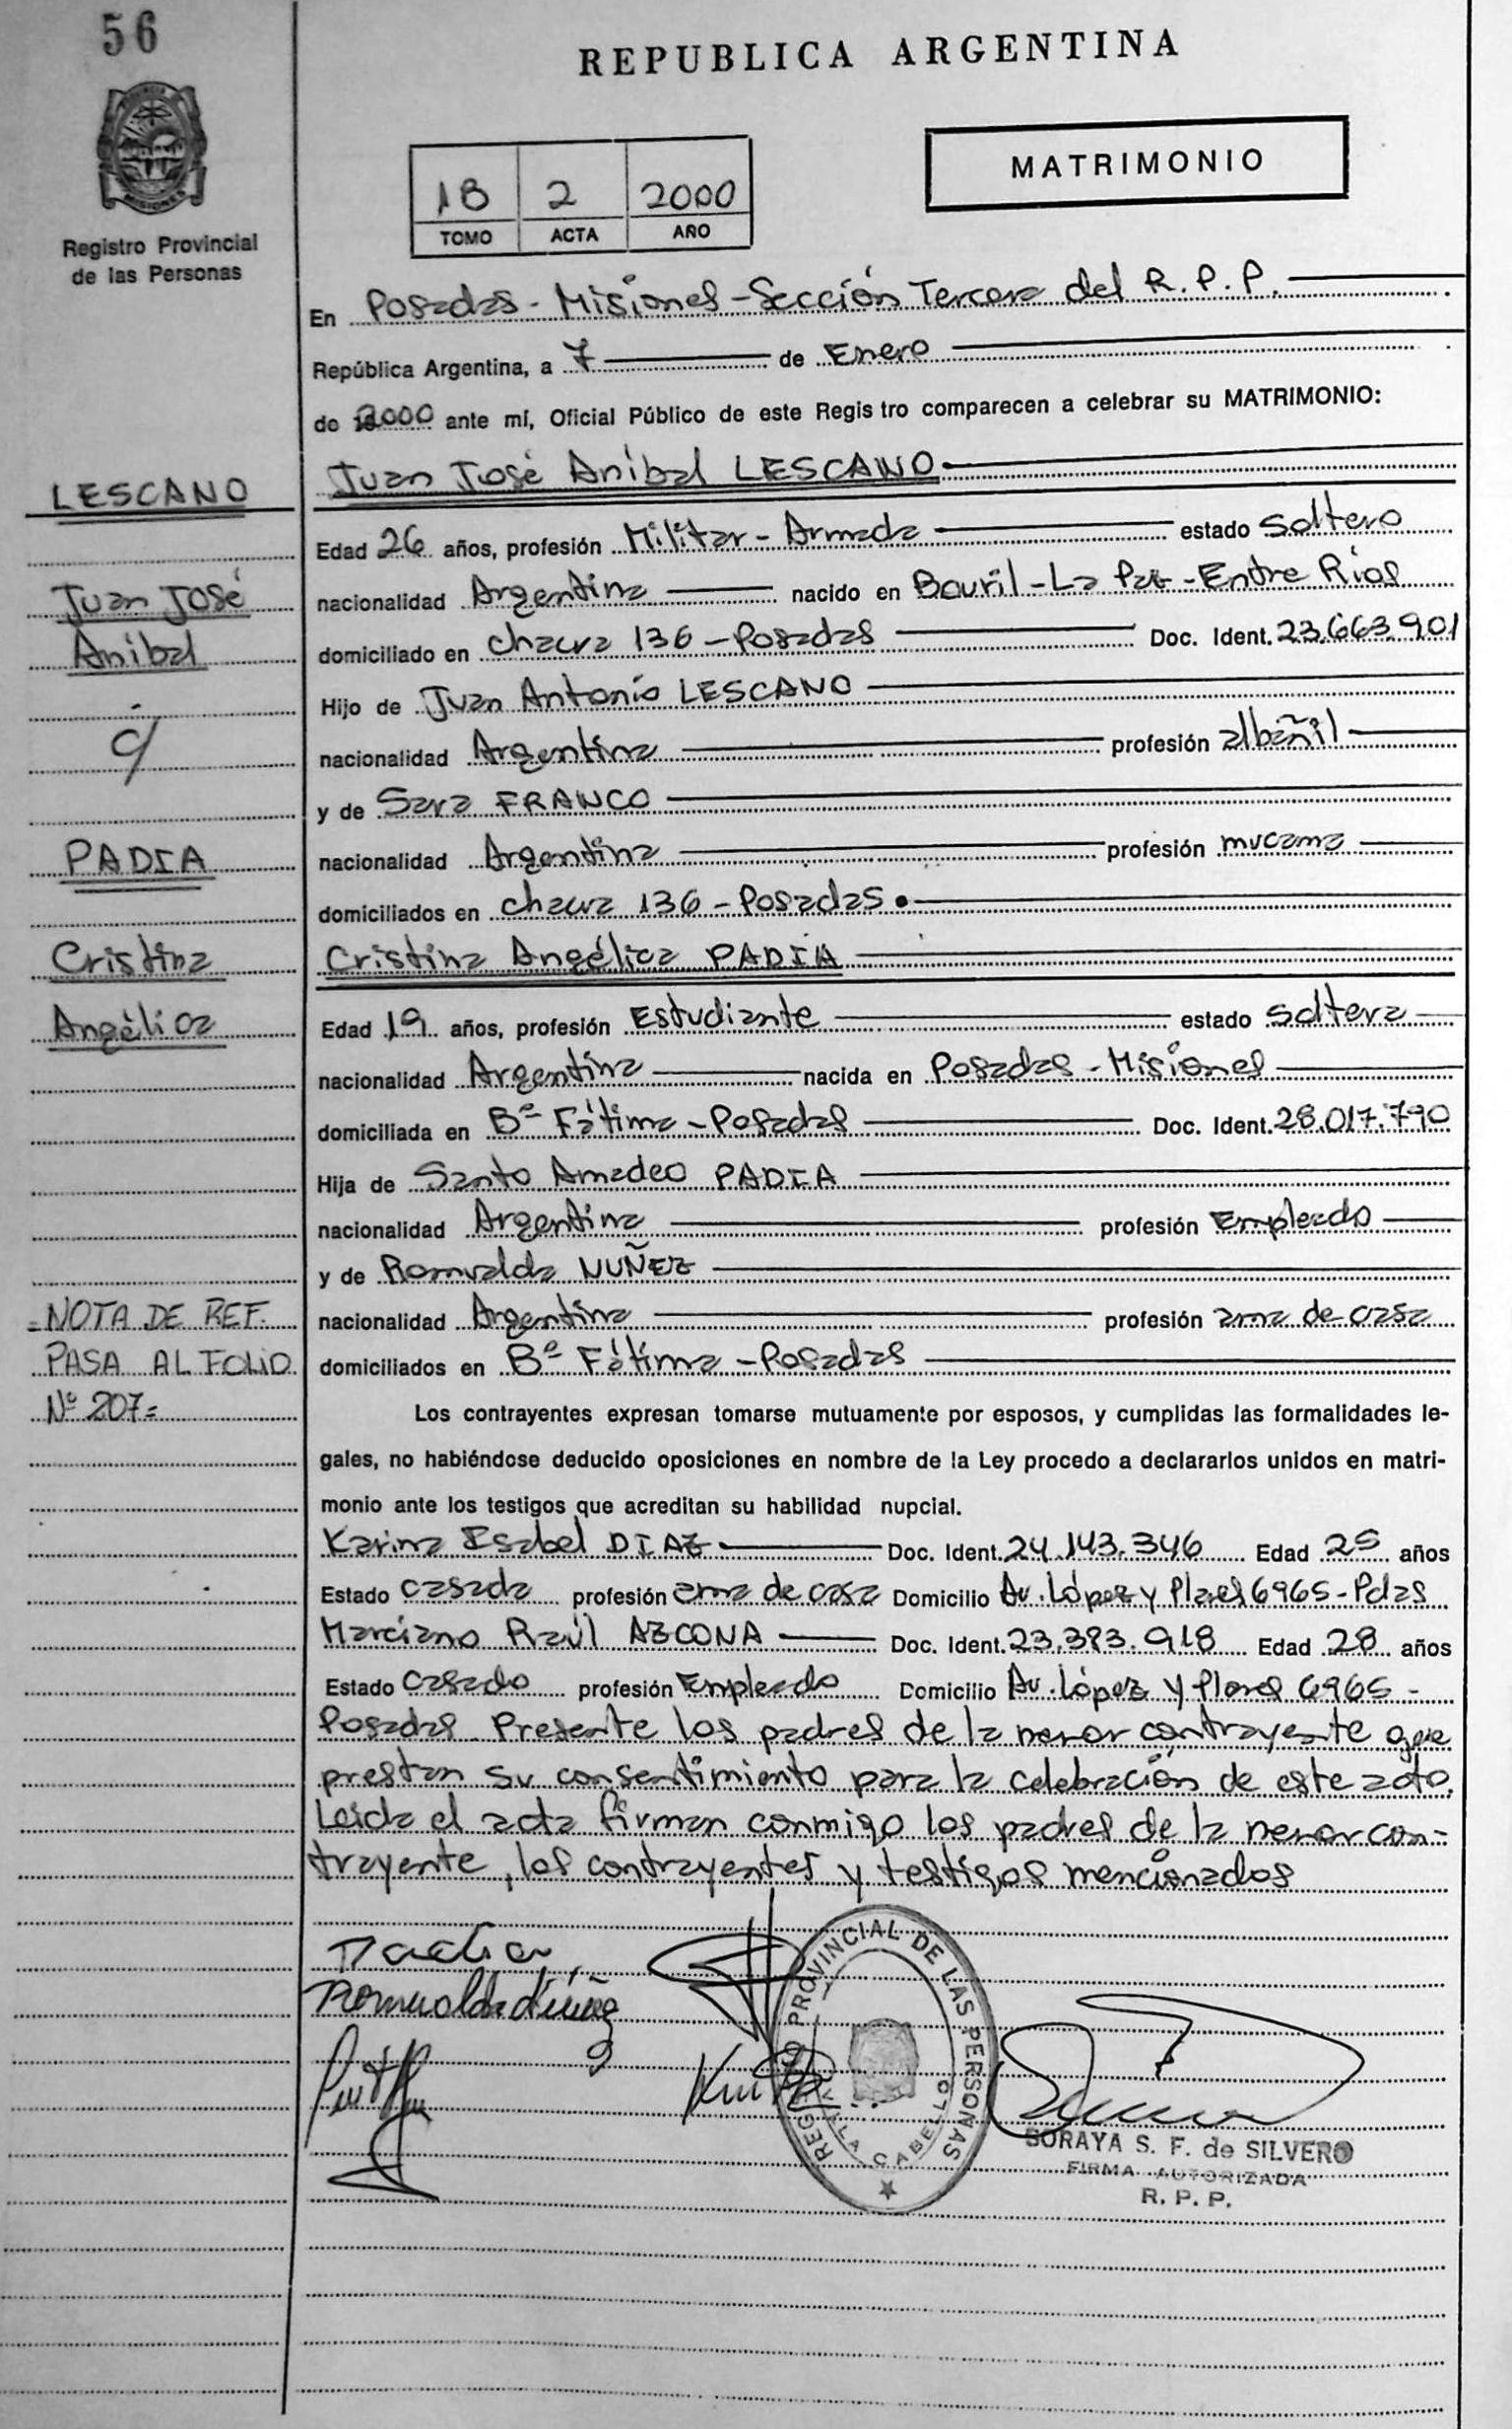 56
REPUBLICA ARGENTINA
MISIONES
Registro Provincial
de las Personas
MATRIMONIO
1B 2 2000
TOMO ACTA AÑO
En Posadas - Misiones - Sección Tercera del R.P.P.
República Argentina, a 7 de Enero
de 2000 ante mí, Oficial Público de este Registro comparecen a celebrar su MATRIMONIO:
LESCANO
Juan José
Anibal
c/
PADIA
Cristina
Angélica
NOTA DE REF.
PASA AL FOLIO
Nº 207=
Juan José Anibal LESCANO
Edad 26 años, profesión Militar - Armada estado soltero
nacionalidad Argentina nacido en Bouril - La Paz - Entre Ríos
domiciliado en chacra 136 - Posadas Doc. Ident. 23.663.901
Hijo de Juan Antonio LESCANO
nacionalidad Argentina profesión albañil
y de Sara FRANCO
nacionalidad Argentina profesión mucama
domiciliados en chacra 136 - Posadas.
Cristina Angélica PADIA
Edad 19 años, profesión Estudiante estado soltera
nacionalidad Argentina nacida en Posadas - Misiones
domiciliada en Bº Fátima - Posadas Doc. Ident. 28.017.790
Hija de Santo Amadeo PADIA
nacionalidad Argentina profesión Empleado
y de Romualda NUÑEZ
nacionalidad Argentina profesión ama de casa
domiciliados en Bº Fátima - Posadas
Los contrayentes expresan tomarse mutuamente por esposos, y cumplidas las formalidades le-
gales, no habiéndose deducido oposiciones en nombre de la Ley procedo a declararlos unidos en matri-
monio ante los testigos que acreditan su habilidad nupcial.
Karina Isabel DIAZ Doc. Ident. 24.143.346 Edad 25 años
Estado casada profesión ama de casa Domicilio Av. López y Planes 6965 - Pdas
Marciano Raúl AZCONA Doc. Ident. 23.383.918 Edad 28 años
Estado casado profesión Empleado Domicilio Av. López y Planes 6965 -
Posadas. Presente los padres de la menor contrayente que
prestan su consentimiento para la celebración de este acto.
Leida el acta firman conmigo los padres de la menor con-
trayente, los contrayentes y testigos mencionados
Padia
Romualda Núñez
REGISTRO PROVINCIAL DE LAS PERSONAS
VILLA CABELLO
SORAYA S. F. de SILVERO
FIRMA AUTORIZADA
R. P. P.